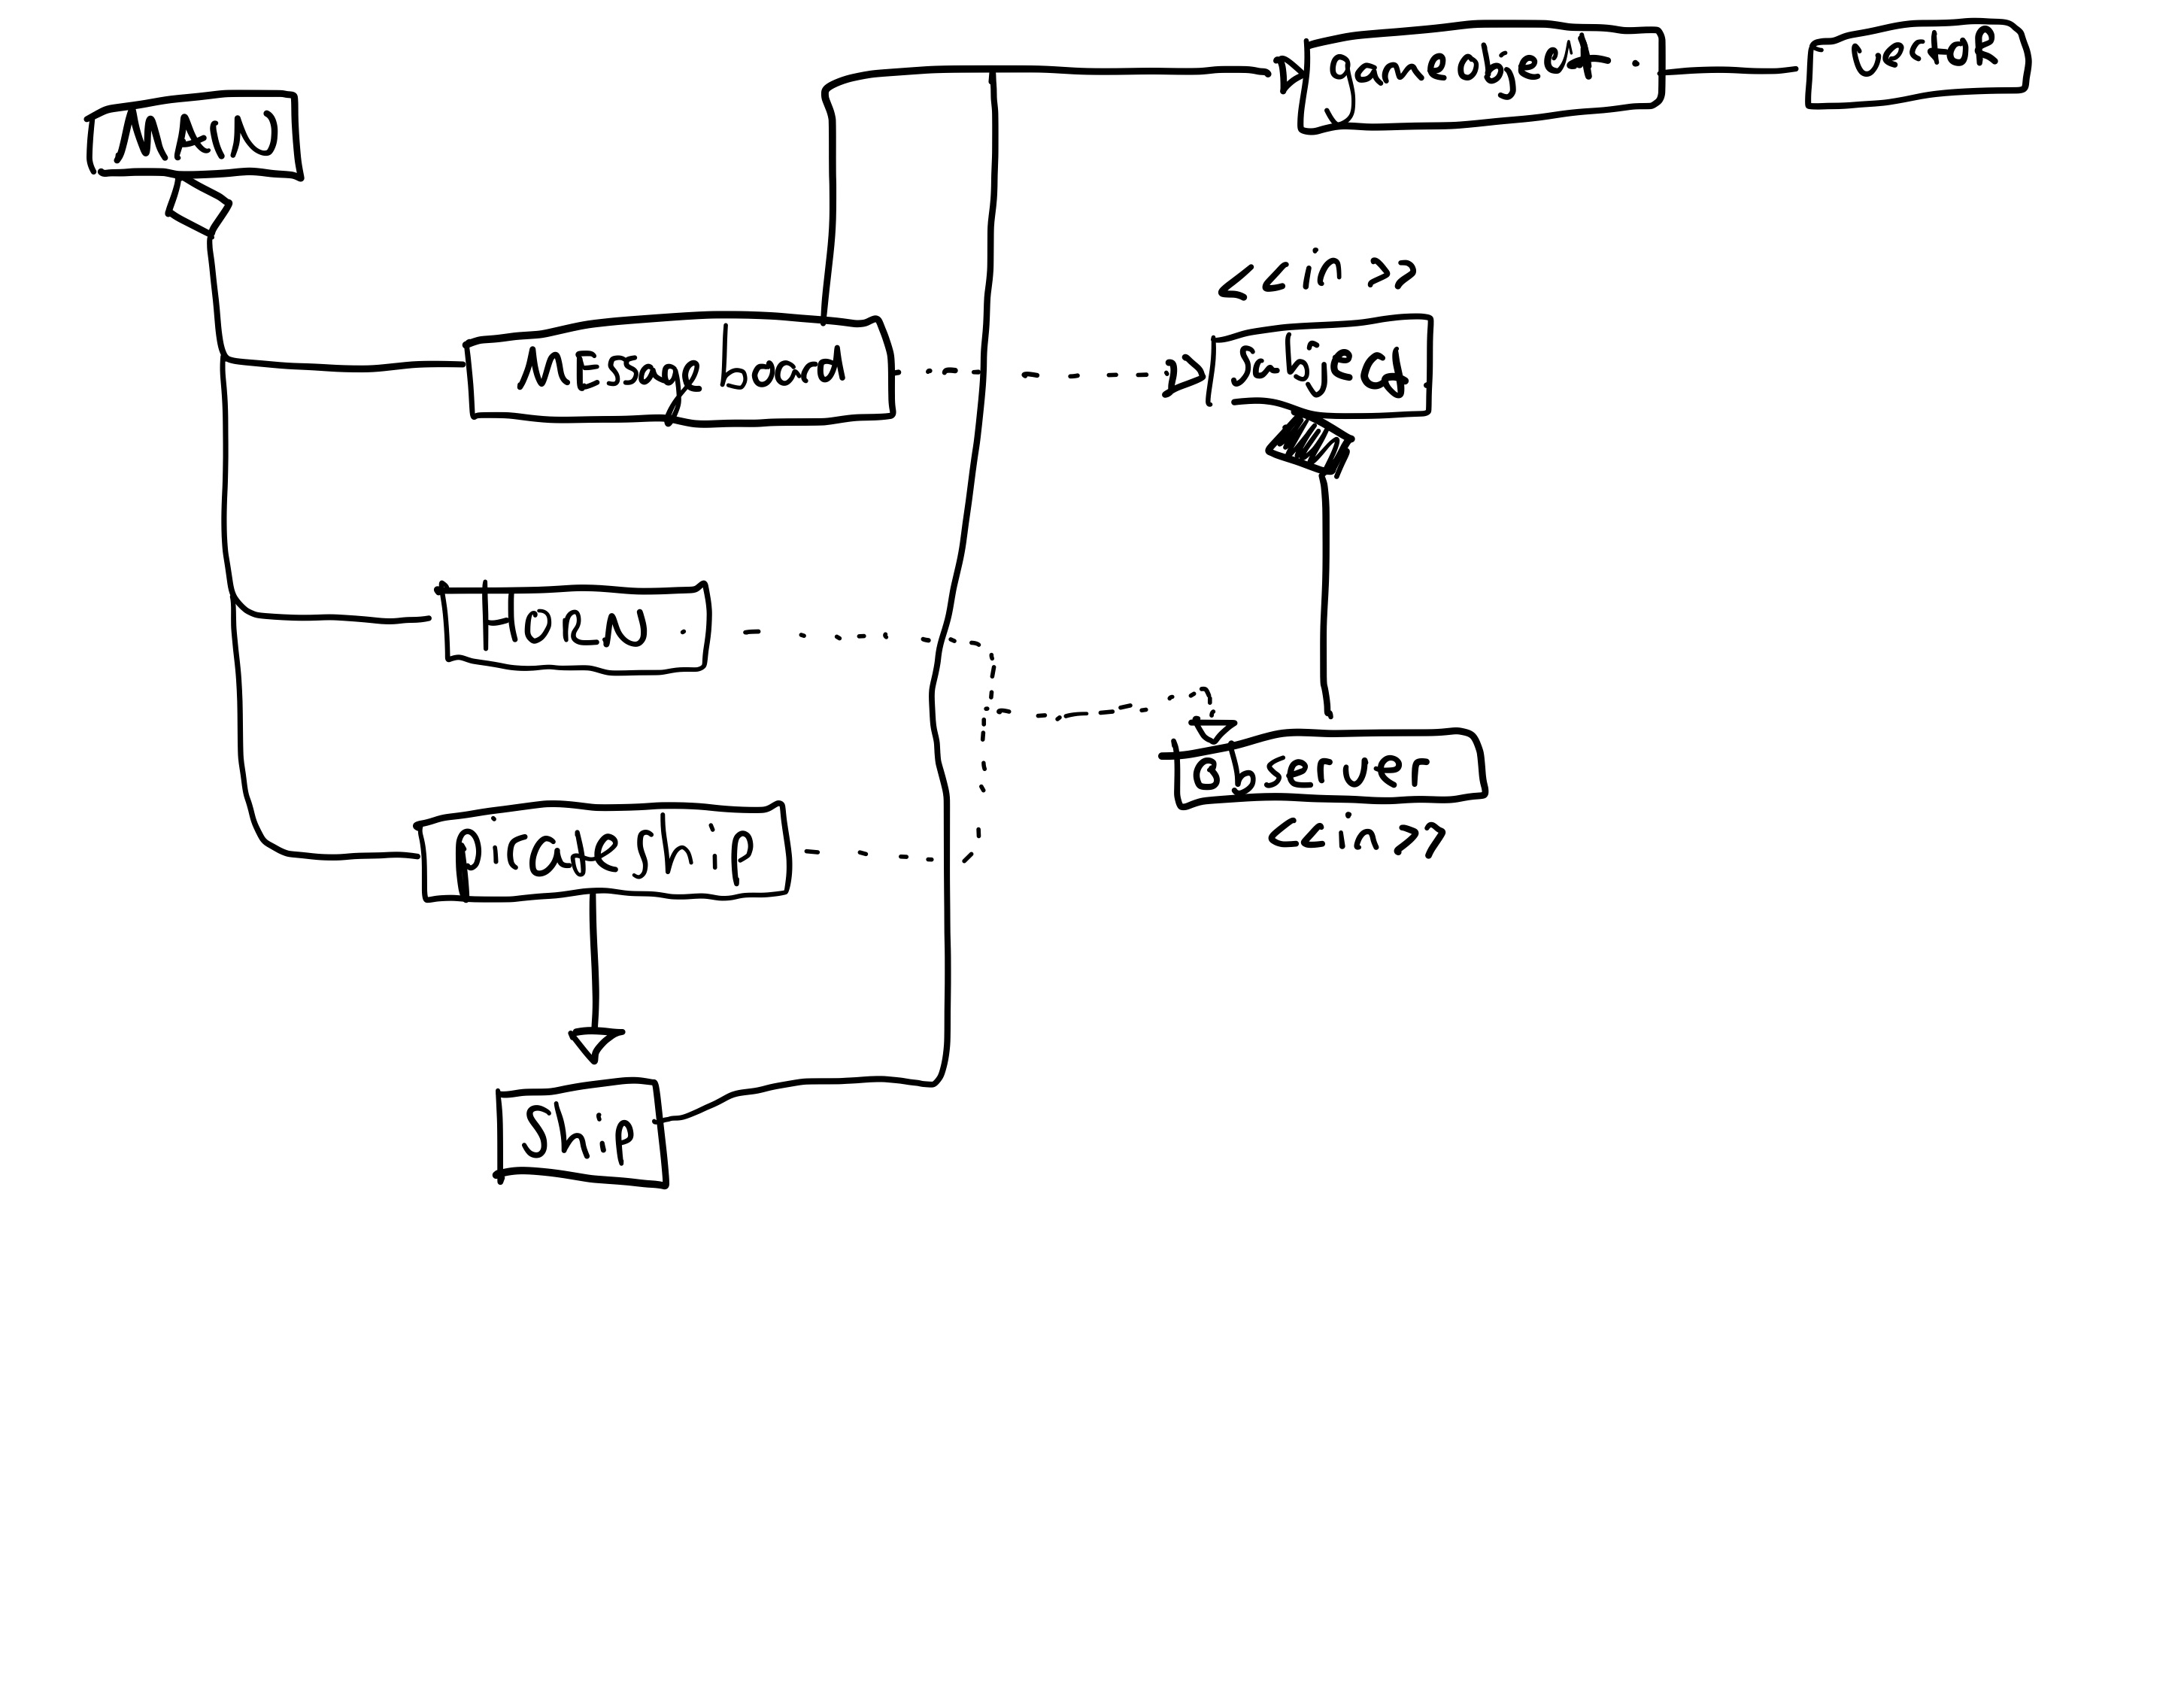 gameobject
vector
MAIN
<<in>>
MEssage board
Subject
HORN
Observer
<<in>>
pirateship
Ship